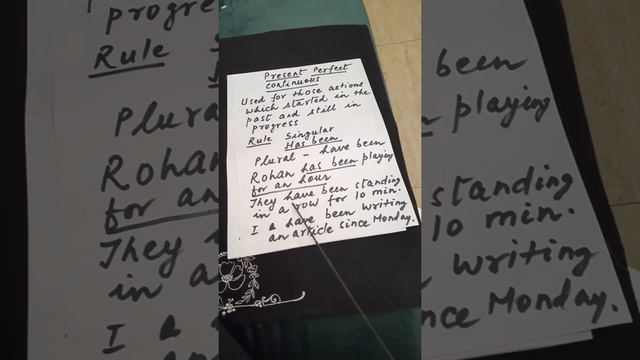 Present Perfect
continuous
Used for those actions
which started in the
past and still in
progress
Rule Singular
Has been
Plural - have been
Rohan has been playing
for an hour
They have been standing
in a row for 10 min.
I a have been writing
an article since Monday.